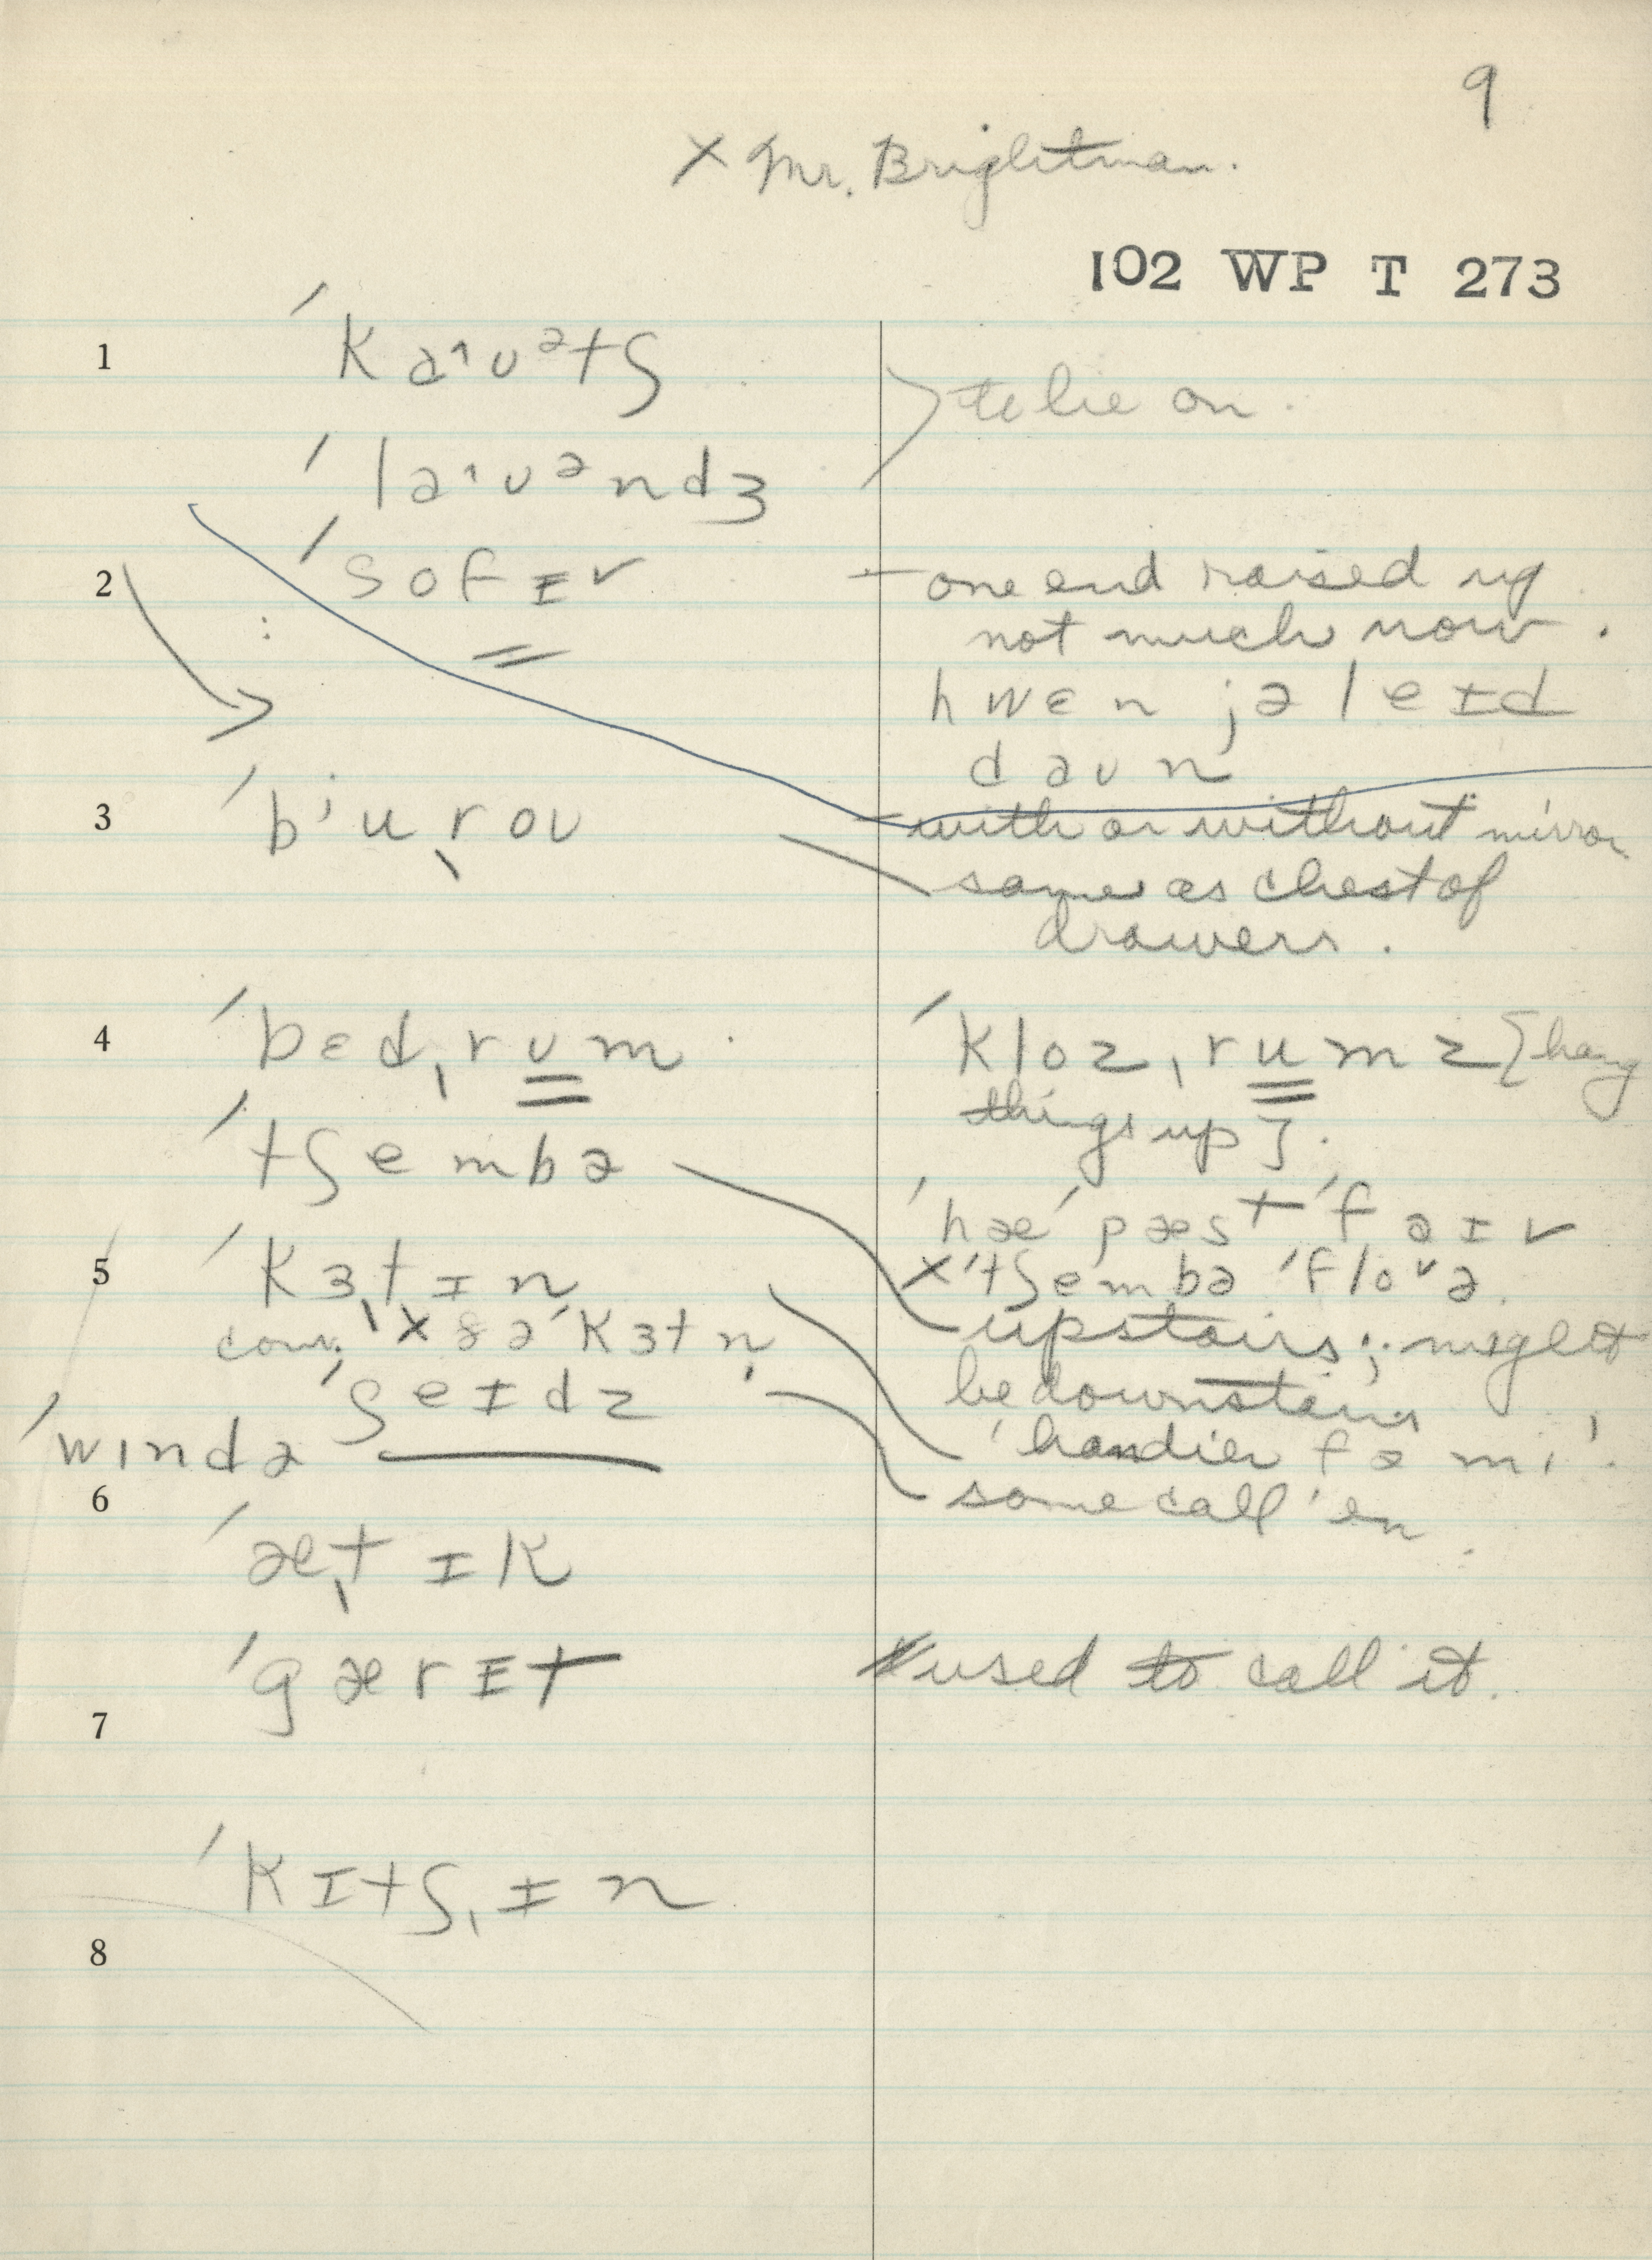 9
x Mr. Brightman.
102 WP T 273
1 ˈkaˑʊətʃ
to lie on.
ˈlaˑʊəndʒ
2 ˈsofɪv – one end raised up
not much now.
hwɛn jə leɪd
daʊn
3 ˈbʲuˌroʊ – with or without mirror
same as chest of
drawers.
4 ˈbɛdˌrʊm. ˈklozˌrumz [hang
things up].
ˈtʃembə
ˈhæˈpæstˈfaɪv
5 ˈkɜˌtɪn xˈtʃembəˈfloˇə.
conv. x ðəˈkɜtn̩ upstairs; might
ˈʃeɪdz be downstairs
ˈwɪndə 'handier fə mi'.
6 some call 'em.
ˈæˌtɪk
ˈgærɪt used to call it.
7
ˈkɪtʃˌɪn
8